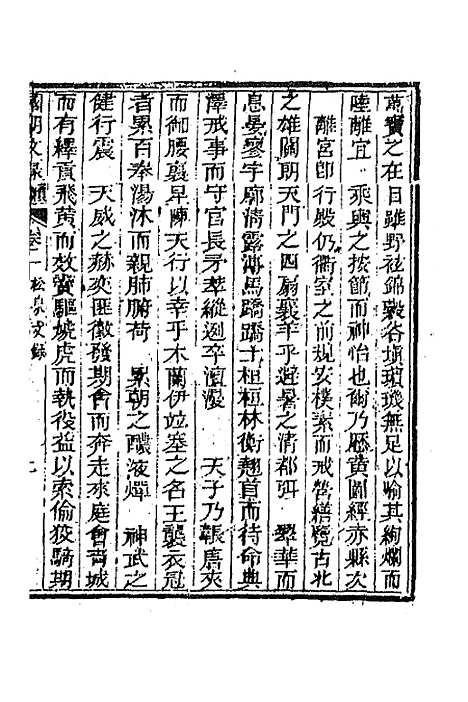 萬寶之在目雖野祛錦縠谷塡瓊璣無足以喻其絢爛而
陸離宜　乘輿之按節而神怡也爾乃歷黃圖經赤縣次
離宮卽行殿仍衢室之前規安樸素而戒營繕覽古北
之雄關朝天門之四扇襄羊乎避暑之清都弭　翠華而
息晏寥宇廓清露溥馬蹻蹻士桓桓林衡翹首而待命典
澤戒事而守官長旁莘縱迾卒濆漫　天子乃韔唐夾
而御腰褭早陳天行以幸乎木蘭伊竝塞之名王襲衣冠
者累百奉湯沐而親肺腑荷　累朝之醲液燀　神武之
健行震　天威之赫奕匪徽發期會而奔走來庭會啇城
而有釋賁飛黃而效賚驅城虎而執役益以索倫狡騎期
國朝文彔　卷二　松泉文錄